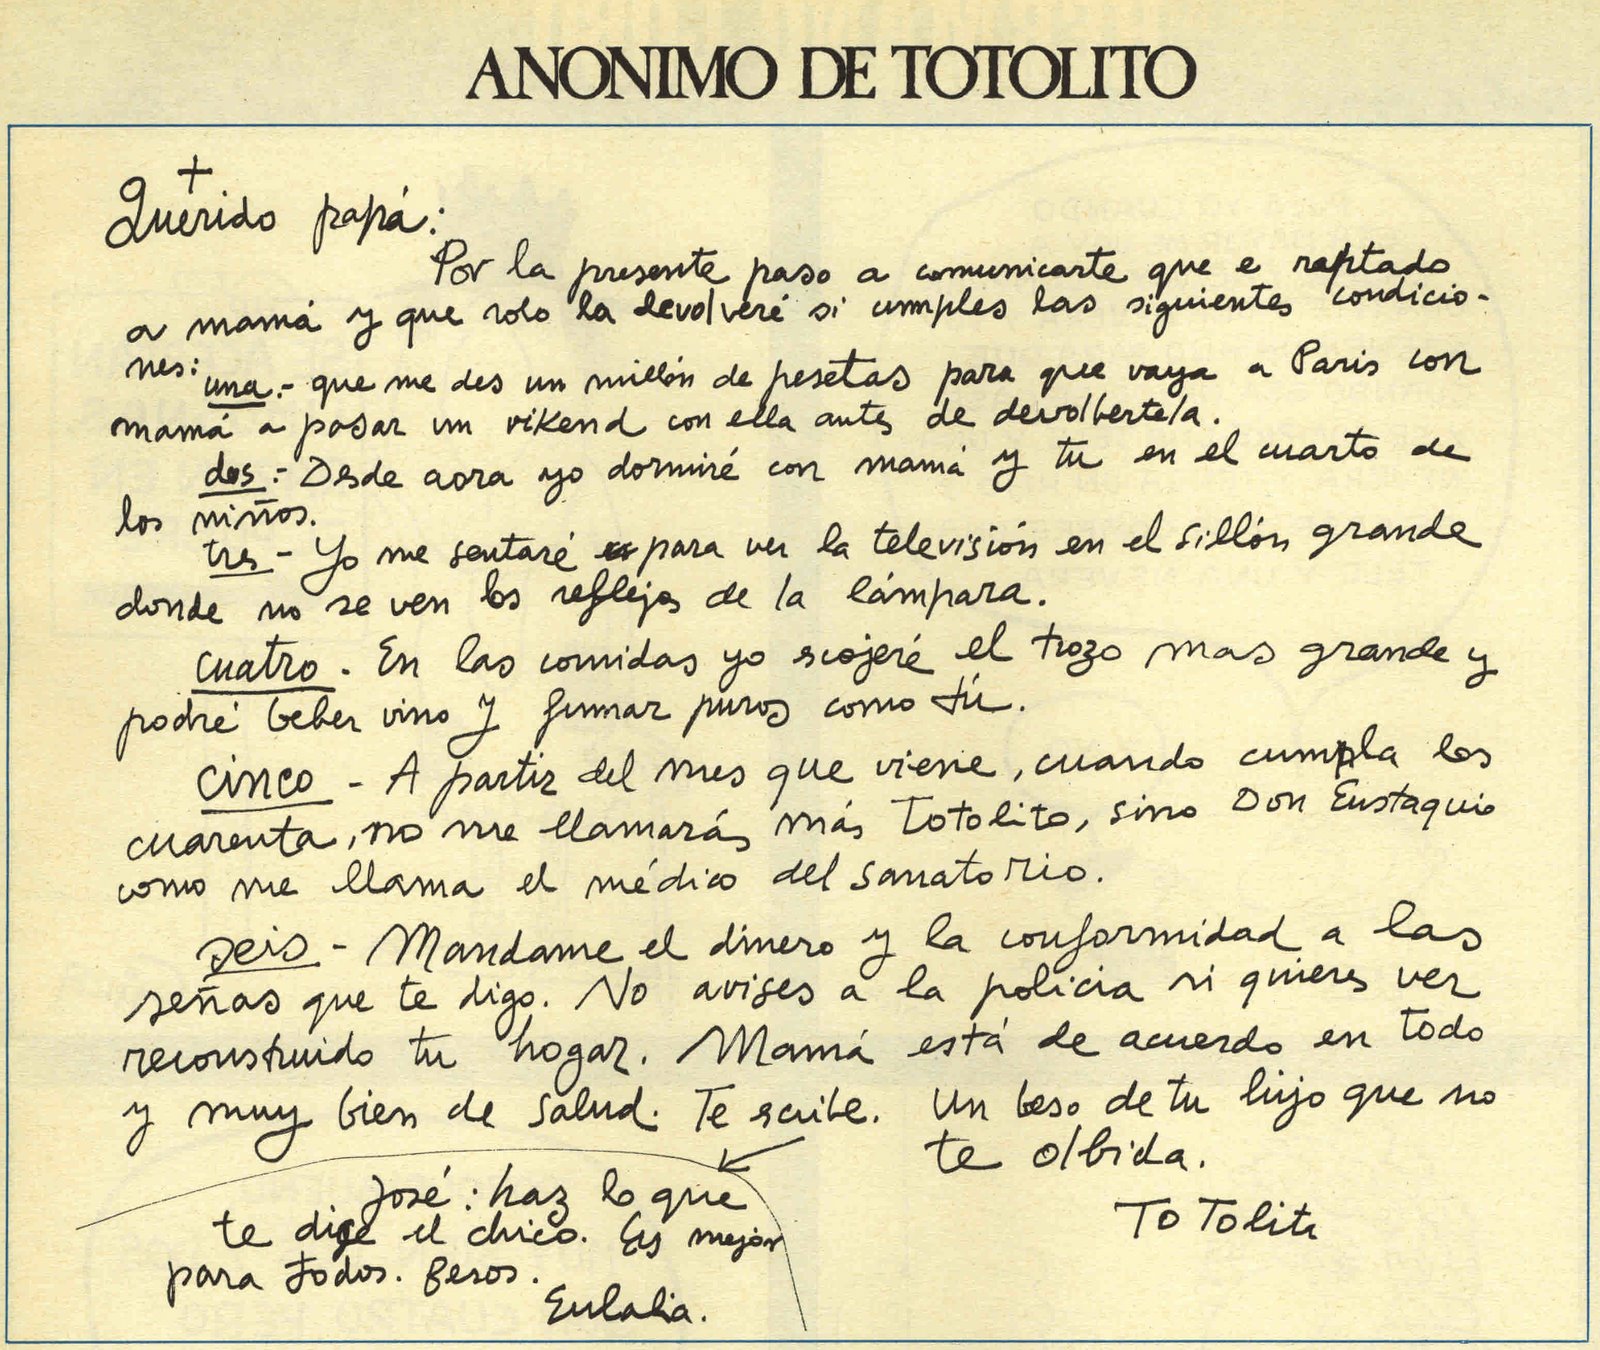 ANONIMO DE TOTOLITO
+
Querido papá:
Por la presente paso a comunicarte que e raptado
a mamá y que solo la devolveré si cumples las siguientes condicio-
nes:
una.- que me des un millón de pesetas para que vaya a Paris con
mamá a pasar un vikend con ella antes de devolbertela.
dos.- Desde aora yo dormiré con mamá y tu en el cuarto de
los niños.
tres - Yo me sentaré para ver la televisión en el sillón grande
donde no se ven los reflejos de la lámpara.
cuatro. En las comidas yo scojeré el trozo mas grande y
podré beber vino y fumar puros como tú.
cinco - A partir del mes que viene, cuando cumpla los
cuarenta, no me llamarás más Totolito, sino Don Eustaquio
como me llama el médico del sanatorio.
seis - Mandame el dinero y la conformidad a las
señas que te digo. No avises a la policia si quieres ver
reconstruido tu hogar. Mamá está de acuerdo en todo
y muy bien de salud. Te scribe. Un beso de tu hijo que no
te olbida.
Totolito
José: haz lo que
te dice el chico. Es mejor
para todos. Besos.
Eulalia.